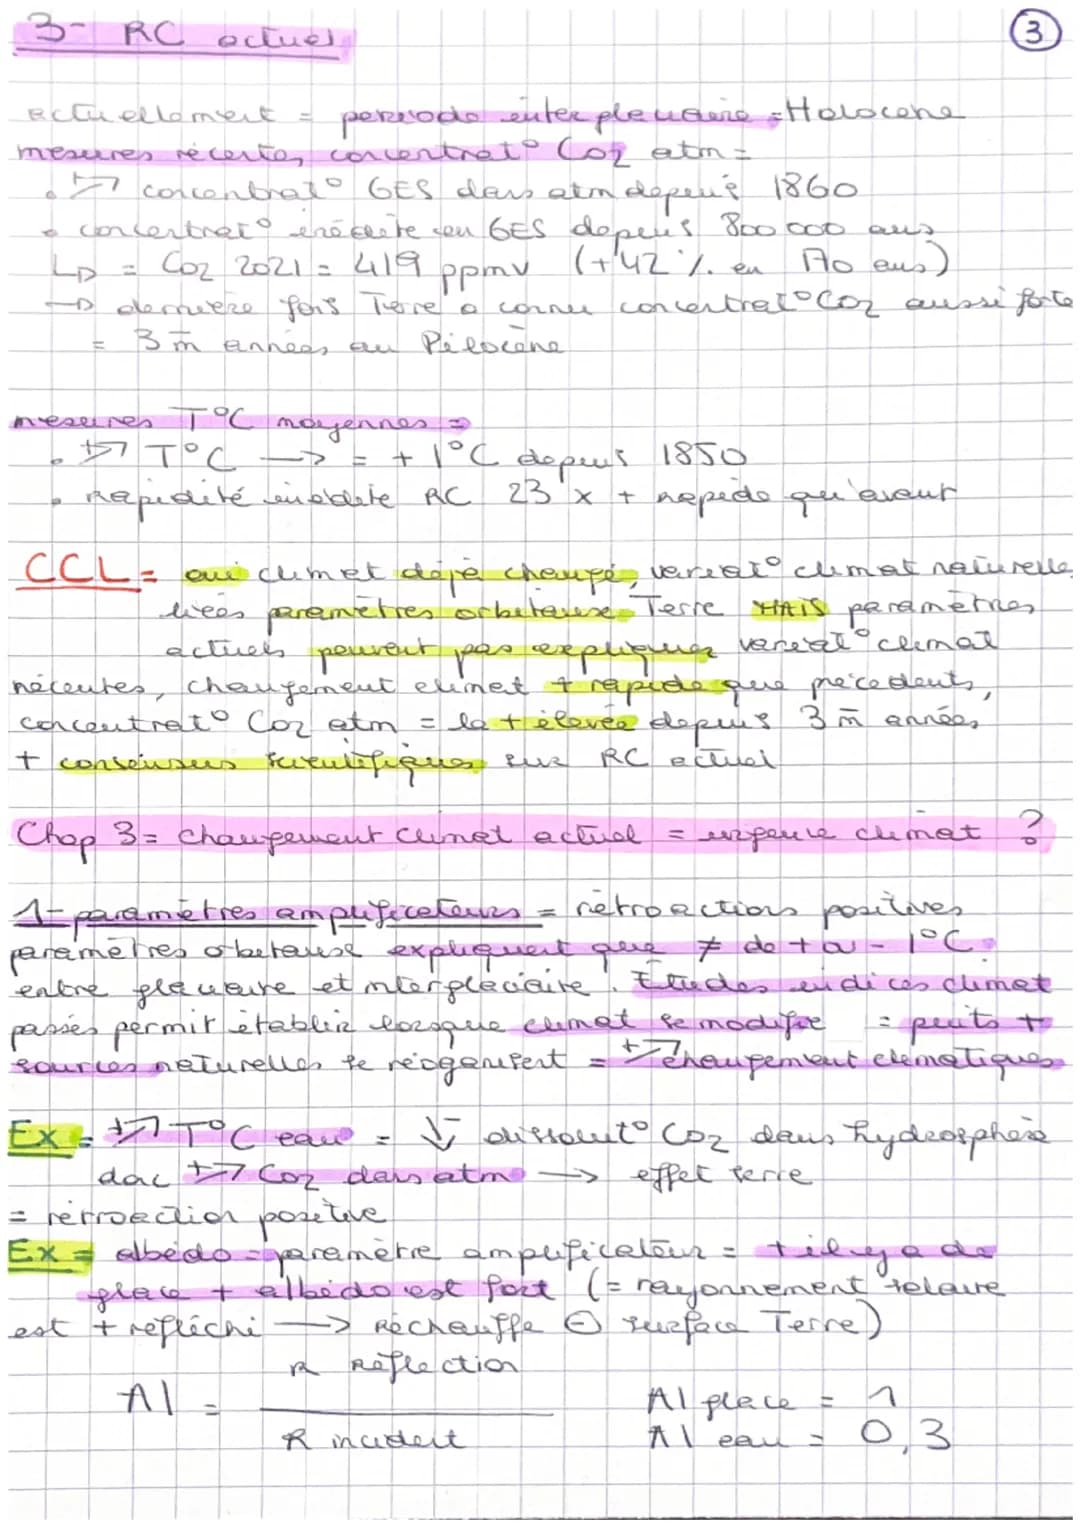 3- RC actuel
3
actuellement = periode interglaciaire = Holocene
mesures récentes concentrat° CO2 atm =
• +↗ concentrat° GES dans atm depuis 1860
• concentrat° inédite en GES depuis 800 000 ans
↳ = CO2 2021 = 419 ppmv (+42 % en 170 ans)
→ dernière fois Terre a connu concentrat° CO2 aussi forte
= 3 m̄ années au Pilocène
mesures T°C moyennes =
• +↗ T°C → = + 1°C depuis 1850
• Rapidité inédite RC 23 x + rapide qu'avant
CCL = oui climat déjà changé, variat° climat naturelle
liées paramètres orbitaux Terre MAIS paramètres
actuels peuvent pas expliquer variat° climat
récentes, changement climat + rapide que précedents,
concentrat° CO2 atm = la + élevée depuis 3 m̄ années
+ consensus scientifiques sur RC actuel
Chap 3 = changement climat actuel = urgence climat ?
1- paramètres amplificateurs = rétroactions positives
paramètres orbitaux expliquent que ≠ de + ou - 1°C
entre glaciaire et interglaciaire. Études indices climat
passés permit établir lorsque climat se modifie = puits +
sources naturelles se réorganisent = +↗ changement climatiques
Ex = +↗ T°C eau = ↓- dissolut° CO2 dans hydrosphère
dac +↗ CO2 dans atm → effet serre
= rétroaction positive
Ex = albédo = paramètre amplificateur = + il y a de
glace + albédo est fort (= rayonnement solaire
est + réfléchi → Réchauffe ⊖ surface Terre)
R Réflection
Al = ———
R incident
Al glace = 1
Al eau = 0,3